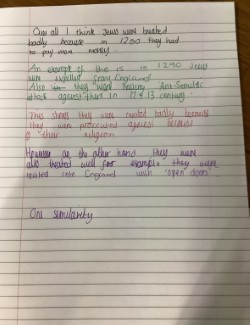 Over all I think Jews were treated
badly because in 1200 they had
to pay more money.
An example of this is in 1290 Jews
were expelled from England
Also they were Anti-Semitic
attack against them in 12 & 13 century
This shows they were treated badly because
they were against because
their religion
However on the other hand they were
also treated well for example they were
into England with "open doors"
One similarity